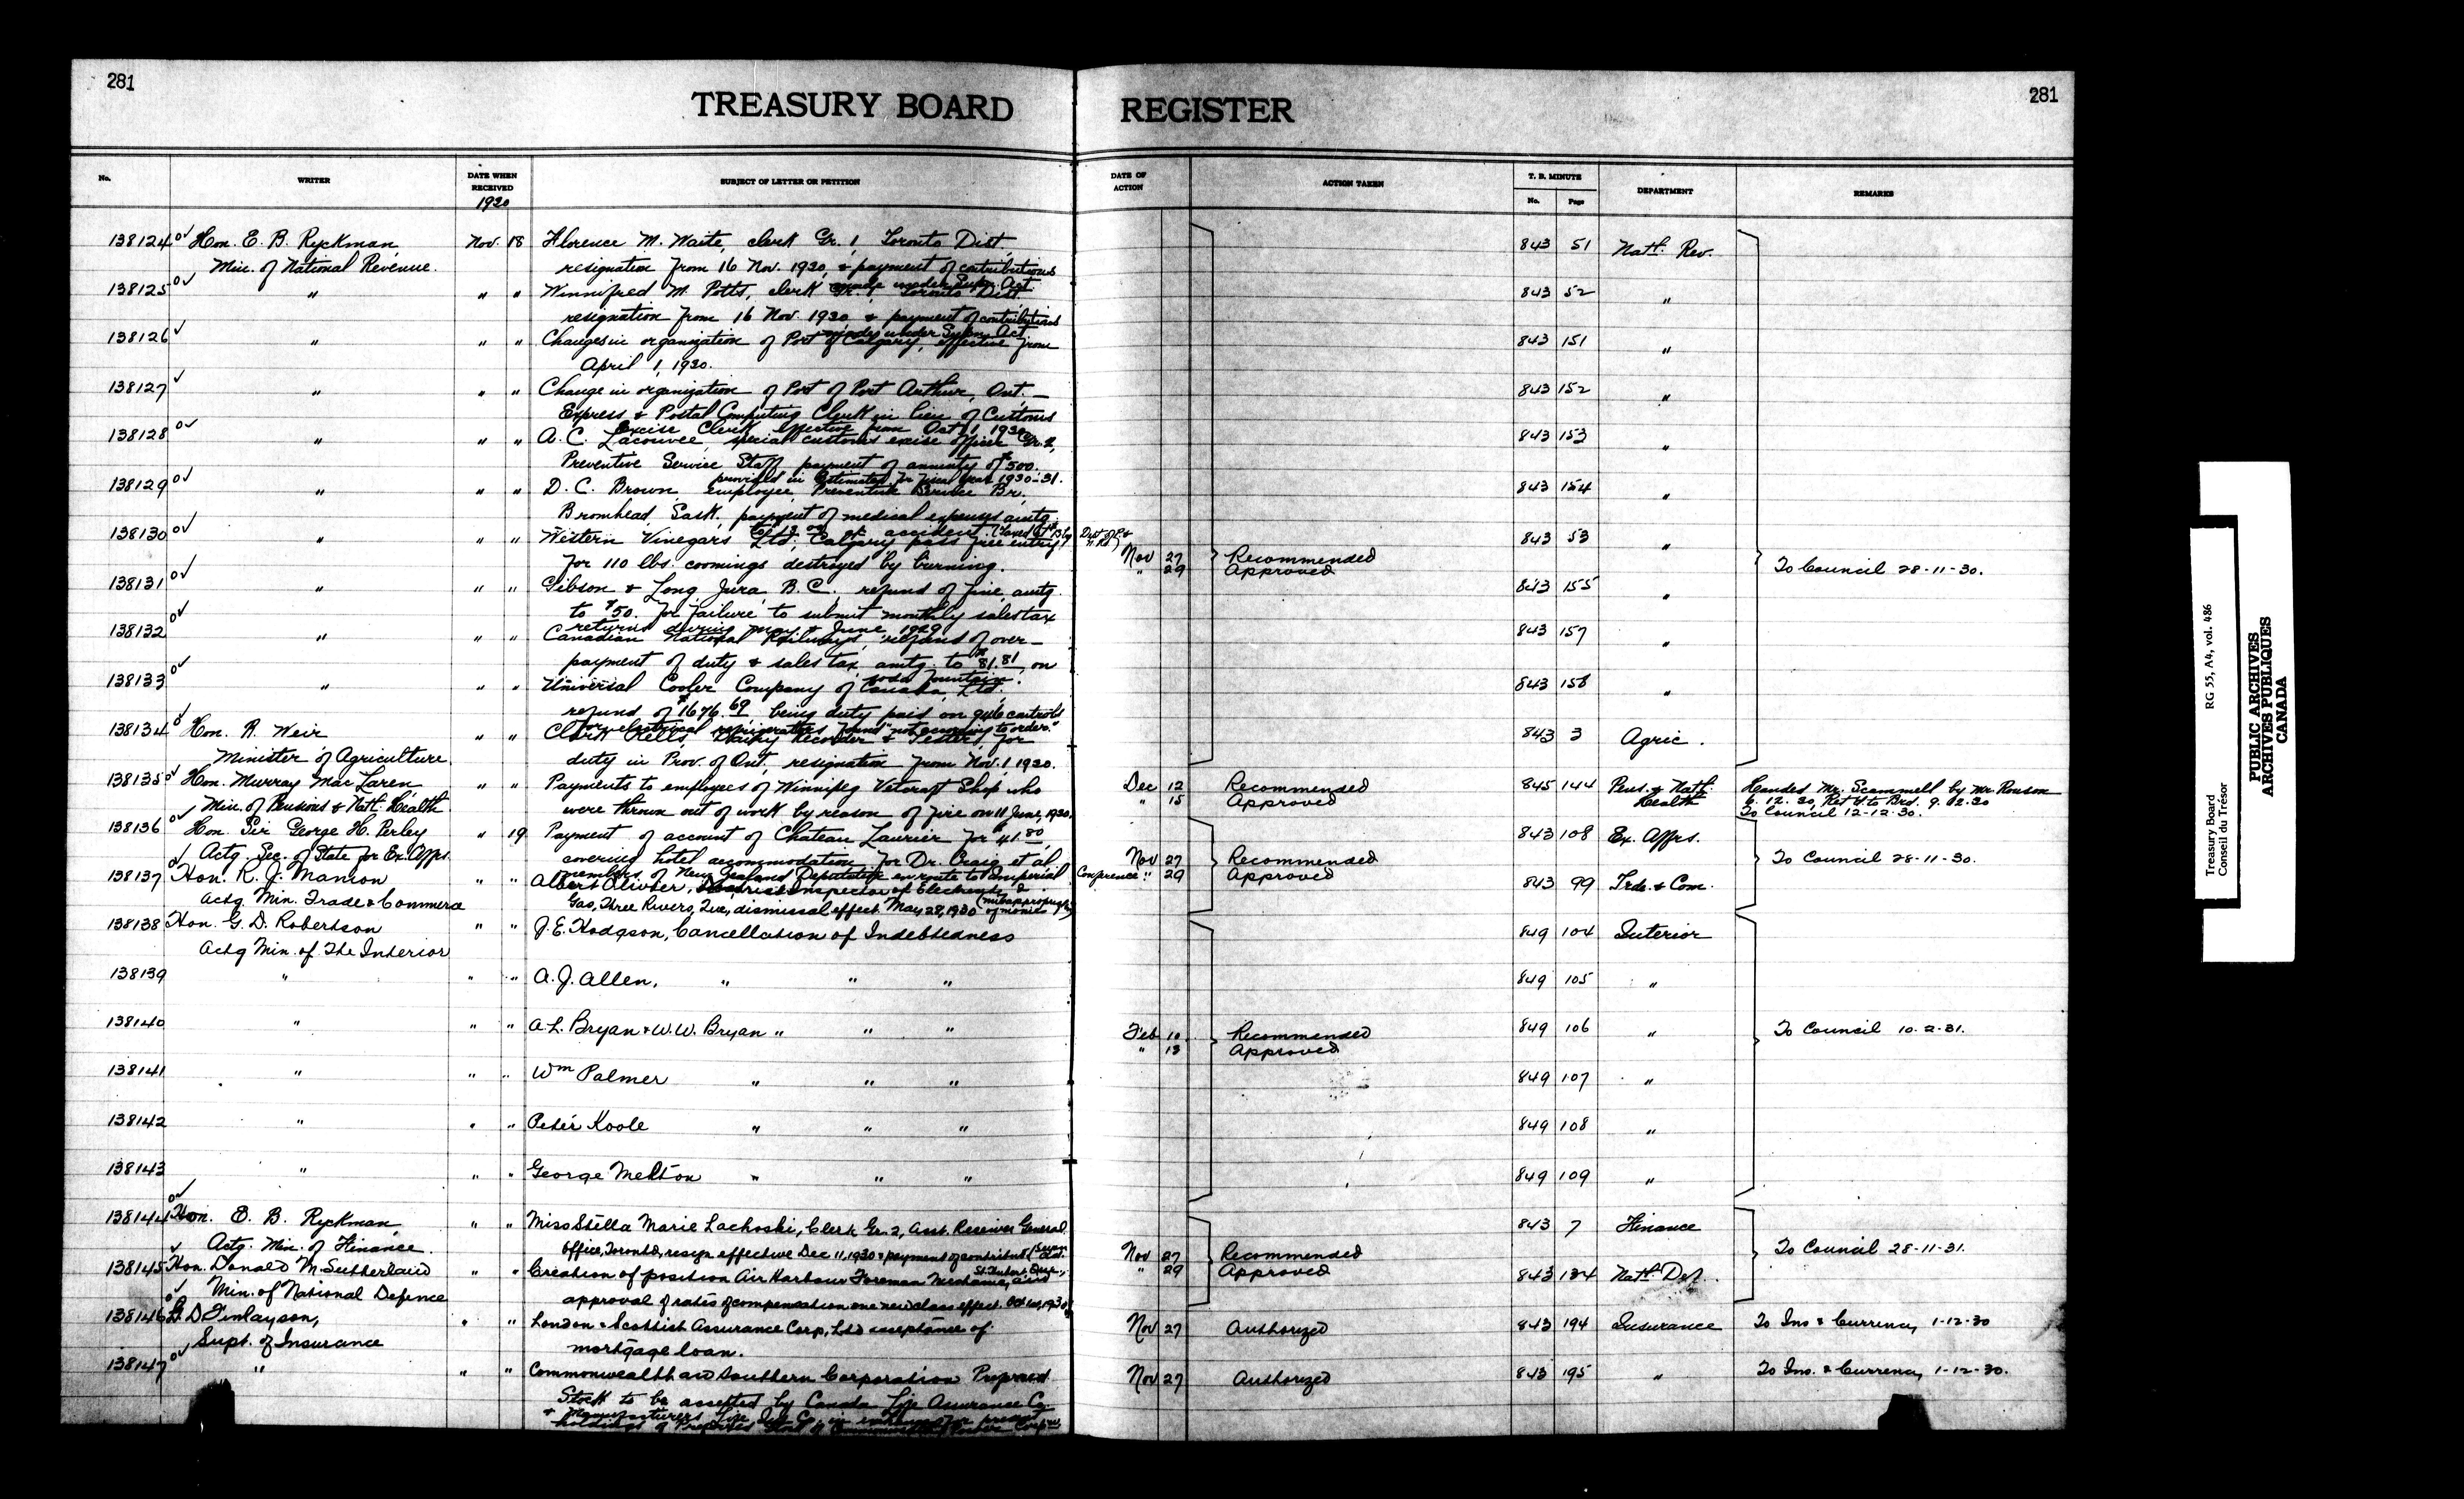 281
TREASURY BOARD REGISTER
281
No. WRITER DATE WHEN RECEIVED SUBJECT OF LETTER OR PETITION DATE OF ACTION ACTION TAKEN T. B. MINUTE No. Page DEPARTMENT REMARKS
1930
138124 Hon. E. B. Ryckman, Nov. 18 Florence M. Waite, clerk Gr. 1, Toronto Dist, 843 51 Natl. Rev.
Min. of National Revenue. resignation from 16 Nov. 1930, & payment of contributions
made under Supn. Act
138125 " " " Winnifred M. Potts, clerk Gr. 1 Toronto Dist. 843 52 "
resignation from 16 Nov. 1930 & payment of contributions
made under Supn. Act
138126 " " " Changes in organization of Port of Calgary, effective from 843 151 "
April 1, 1930.
138127 " " " Change in organization of Port of Port Arthur, Ont. — 843 152 "
Express & Postal Computing Clerk in lieu of Customs
Excise Clerk effective from Oct. 1, 1930
138128 " " " A. C. Lacouvee, special customs excise officer Gr. 2, 843 153 "
Preventive Service Staff, payment of annuity of $500.
provided in Estimates for fiscal year 1930-31.
138129 " " " D. C. Brown, employee, Preventive Service Br. 843 154 "
Bromhead, Sask., payment of medical expenses amtg.
138130 " " " Western Vinegars Ltd; Calgary pass free entry 843 53 "
for 110 lbs. coomings destroyed by burning. Nov 27 Recommended
" 29 Approved To Council 28-11-30.
138131 " " " Gibson & Long, Jura, B.C., refund of fine, amtg. 843 155 "
to $50. for failure to submit monthly sales tax
returns during May & June, 1929
138132 " " " Canadian National Railways, refund of over- 843 157 "
payment of duty & sales tax, amtg. to $81.81, on
soda fountain.
138133 " " " Universal Cooler Company of Canada, Ltd. 843 158 "
refund of $1676.69 being duty paid on 946 controls
for electrical refrigerators found "not according to order."
138134 Hon. R. Weir " " Clark Kells, Dairy Recorder & Tester, for 843 3 Agric.
Minister of Agriculture duty in Prov. of Ont., resignation from Nov. 1, 1930.
138135 Hon. Murray MacLaren, " " Payments to employees of Winnipeg Vetcraft Shop who Dec 12 Recommended 845 144 Pens. & Natl. Health Handed Mr. Scammell by Mr. Ronson
Min. of Pensions & Natl. Health were thrown out of work by reason of fire on 11 June, 1930. " 15 Approved 6.12.30, Ret'd to Brd. 9.12.30
To Council 12-12-30.
138136 Hon. Sir George H. Perley " 19 Payment of account of Chateau Laurier for $41.80, 843 108 Ex. Affrs.
Actg. Sec. of State for Ex. Affrs. covering hotel accommodation for Dr. Craig et al Nov 27 Recommended To Council 28-11-30.
members of New Zealand Deputation en route to Imperial Conference " 29 Approved
138137 Hon. R. J. Manion " " Albert Olivier, Inspector of Electricity & 843 99 Trde. & Com.
Actg. Min. Trade & Commerce Gas, Three Rivers, Que, dismissal effect. May 28, 1930
138138 Hon. G. D. Robertson " " J. E. Hodgson, Cancellation of Indebtedness 849 104 Interior
Actg Min. of The Interior
138139 " " " A. J. Allen, " " " 849 105 "
138140 " " " A. L. Bryan & W. W. Bryan " " " 849 106 "
Feb 10 Recommended To Council 10-2-31.
" 13 Approved
138141 " " " Wm Palmer " " " 849 107 "
138142 " " " Peter Koole " " " 849 108 "
138143 " " " George Melton " " " 849 109 "
138144 Hon. E. B. Ryckman, " " Miss Stella Marie Lachoski, Clerk Gr. 2, Asst. Receiver General 843 7 Finance
Actg. Min. of Finance. Office, Toronto, resign effective Dec 11, 1930 & payment of contribut Nov 27 Recommended To Council 28-11-31.
138145 Hon. Donald M. Sutherland " " Creation of position Air Harbour Foreman Mechanic, St. Hubert, Que., and " 29 Approved 843 134 Natl. Def.
Min. of National Defence approval of rates of compensation one new class effect. Oct 1st, 1930
138146 G. D. Finlayson, " " London & Scottish Assurance Corp, Ltd acceptance of Nov 27 Authorized 843 194 Insurance To Ins & Currency 1-12-30
Supt. of Insurance mortgage loan.
138147 " " " Commonwealth and Southern Corporation Preferred Nov 27 Authorized 843 195 " To Ins. & Currency 1-12-30.
Stock to be accepted by Canada Life Assurance Co.
& Manufacturers Life Ins. Co. in exchange for present
holdings of Preferred Stock of
Treasury Board RG 55, A4, vol. 486
Conseil du Trésor
PUBLIC ARCHIVES
ARCHIVES PUBLIQUES
CANADA